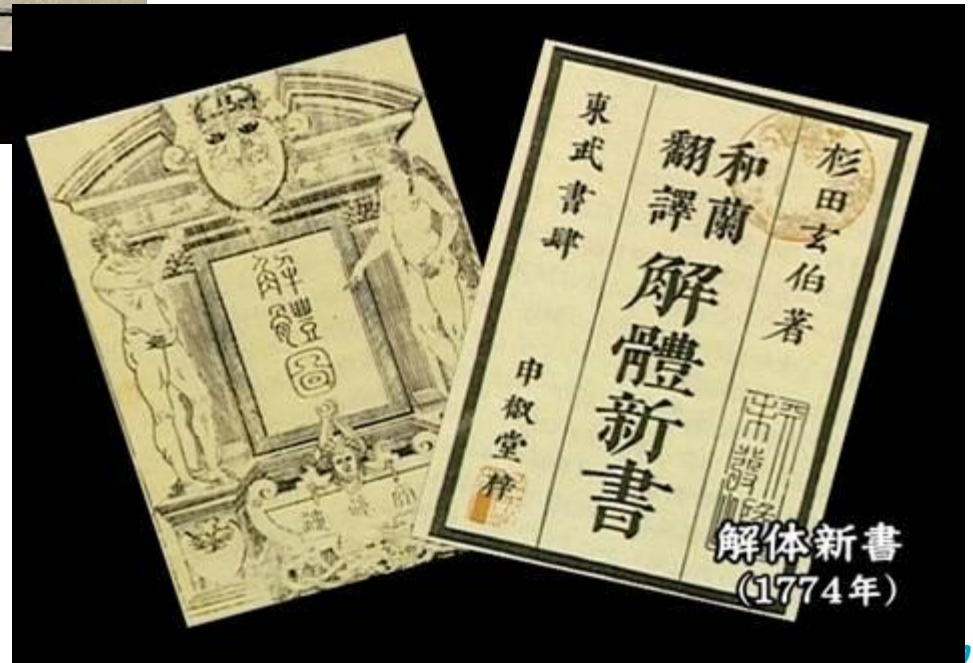 解體圖
杉田玄伯著
和蘭
翻譯
解體新書
東武書肆
申椒堂梓
解体新書
(1774年)